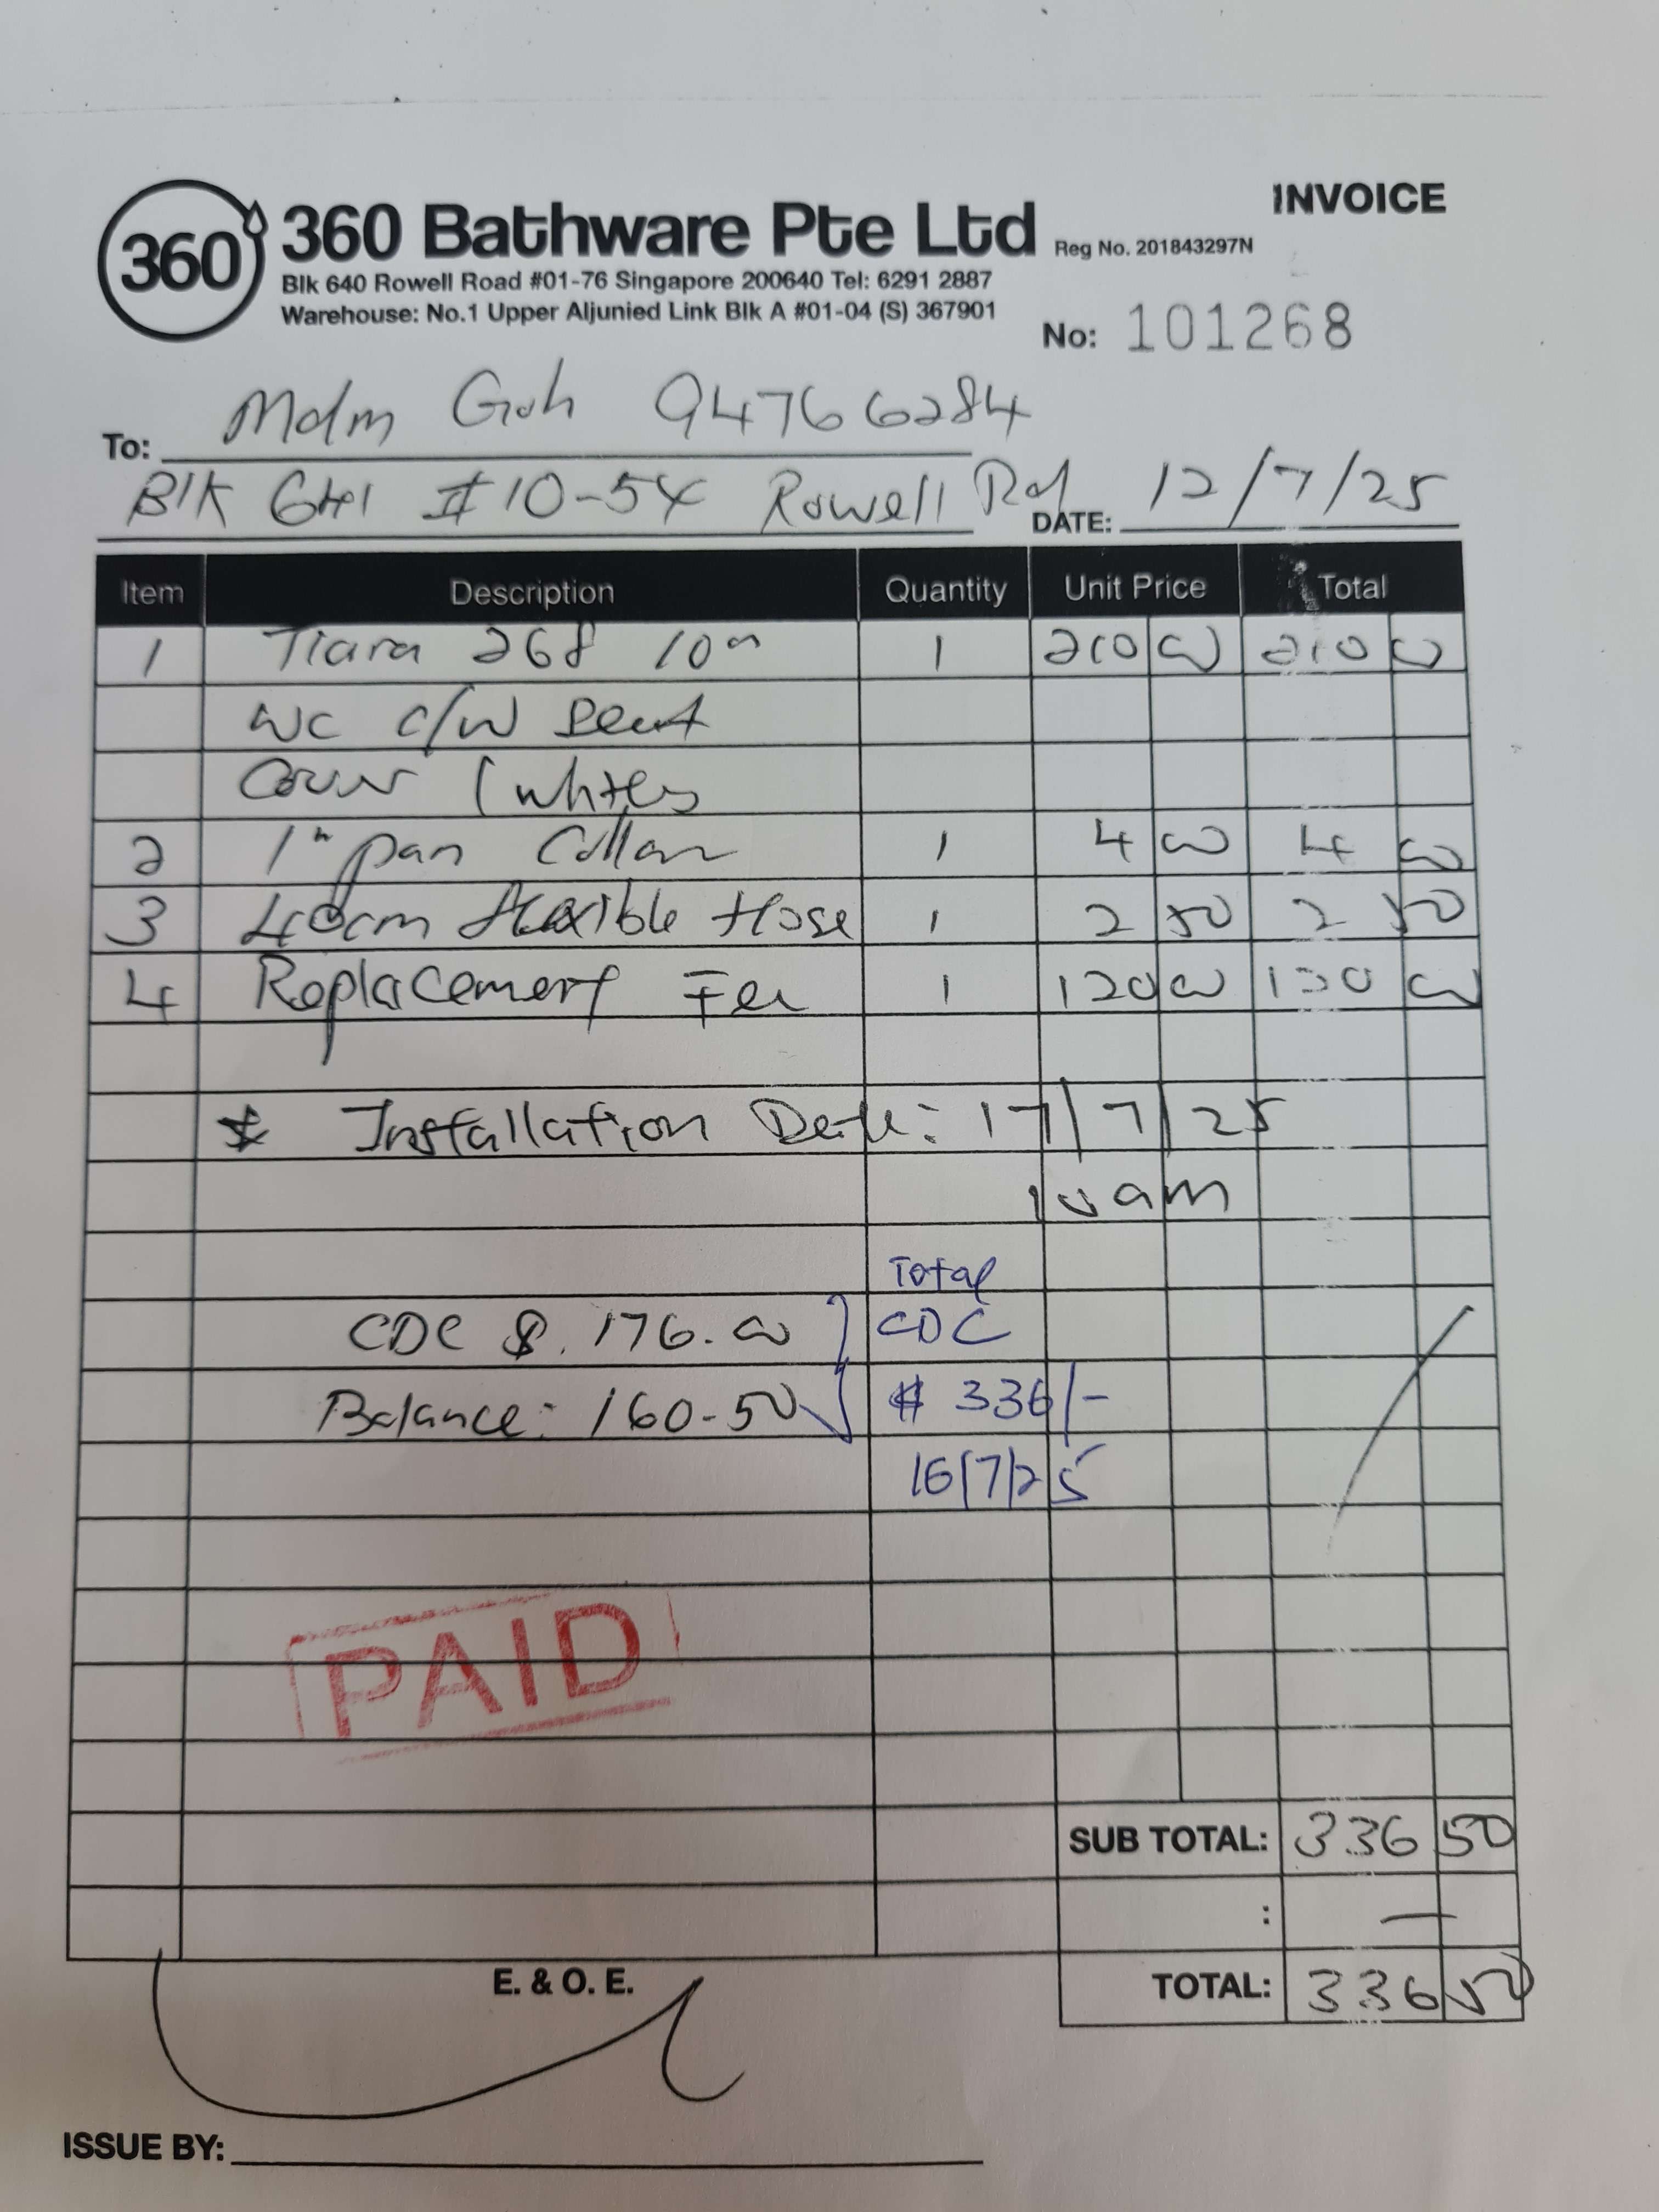 360
360 Bathware Pte Ltd Reg No. 201843297N
INVOICE
Blk 640 Rowell Road #01-76 Singapore 200640 Tel: 6291 2887
Warehouse: No.1 Upper Aljunied Link Blk A #01-04 (S) 367901
No: 101268
To: Mdm Goh 94766284
Blk 641 #10-54 Rowell Rd
DATE: 12/7/25
Item Description Quantity Unit Price Total
1 Tiara 268 10" 1 210 00 210 00
WC c/w Seat
Cover (white)
2 1" pan Collar 1 4 00 4 00
3 40cm flexible Hose 1 2 50 2 50
4 Replacement Fee 1 120 00 120 00
* Installation Date: 17/7/25
10am
Total
CDC $. 176.00 CDC
Balance: 160-50 $ 336/-
16/7/25
PAID
SUB TOTAL: 336 50
: —
TOTAL: 336 50
E. & O. E.
ISSUE BY: